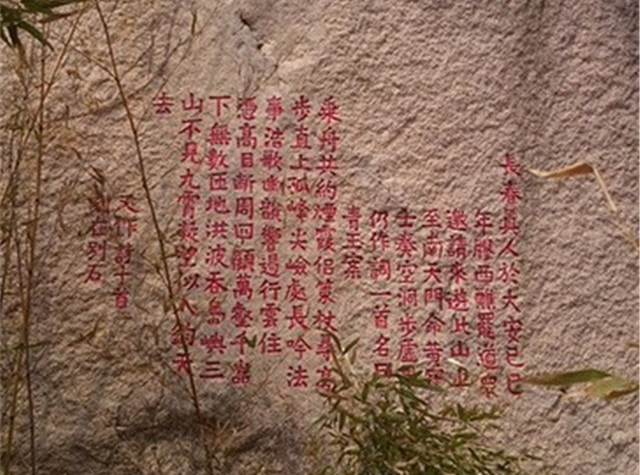 長春眞人於大安己巳
年膠西醮罷道眾
邀請來遊此山上
至南天門命黃冠
士奏空洞步虛
仍作詞一首名曰
青玉案
乘舟共約煙霞侶策杖尋高
步直上孤峰尖嶮處長吟法
事浩歌幽韻響遏行雲住
憑高目斷周回顧萬壑千巖
下無數匝地洪波吞島嶼三
山不見九霄凝望似入鈞天
去
又作詩十首
刻在別石